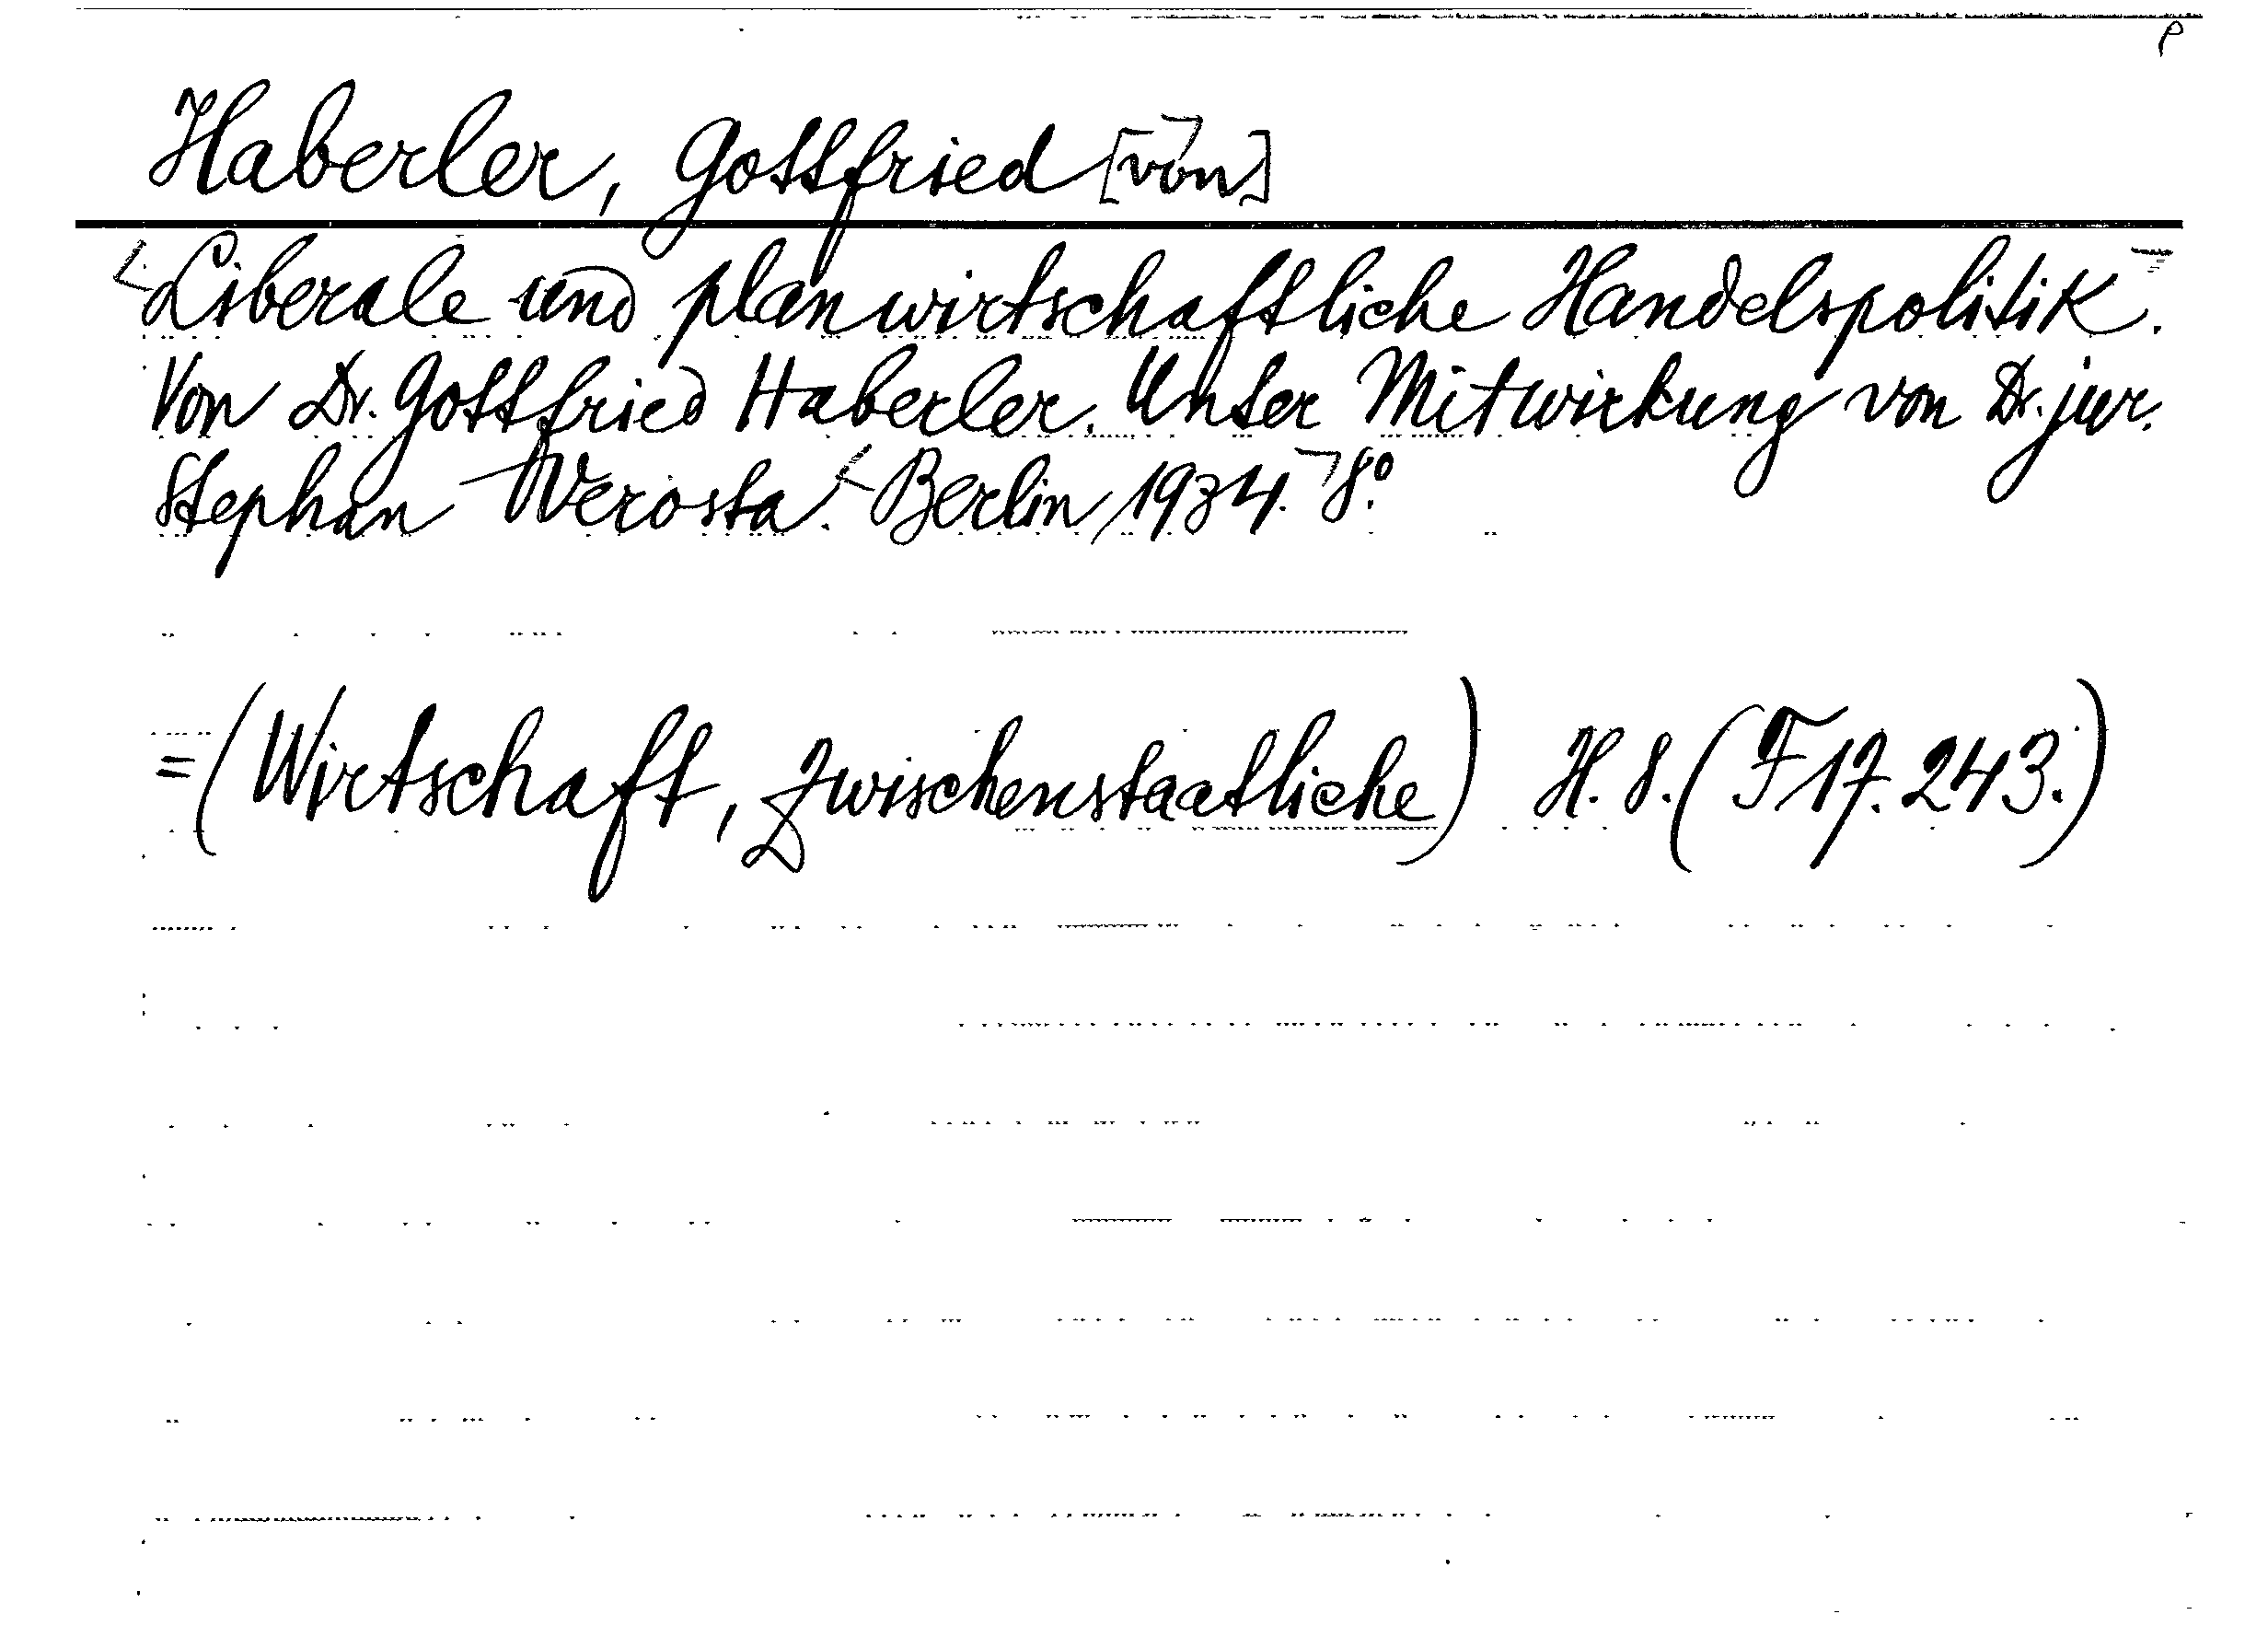 P
Haberler, Gottfried [von]
Liberale und planwirtschaftliche Handelspolitik.
Von Dr. Gottfried Haberler. Unter Mitwirkung von Dr. jur.
Stephan Verosta. Berlin, 1934. 8°.
=(Wirtschaft, zwischenstaatliche) H. 8. (F 17. 243.)